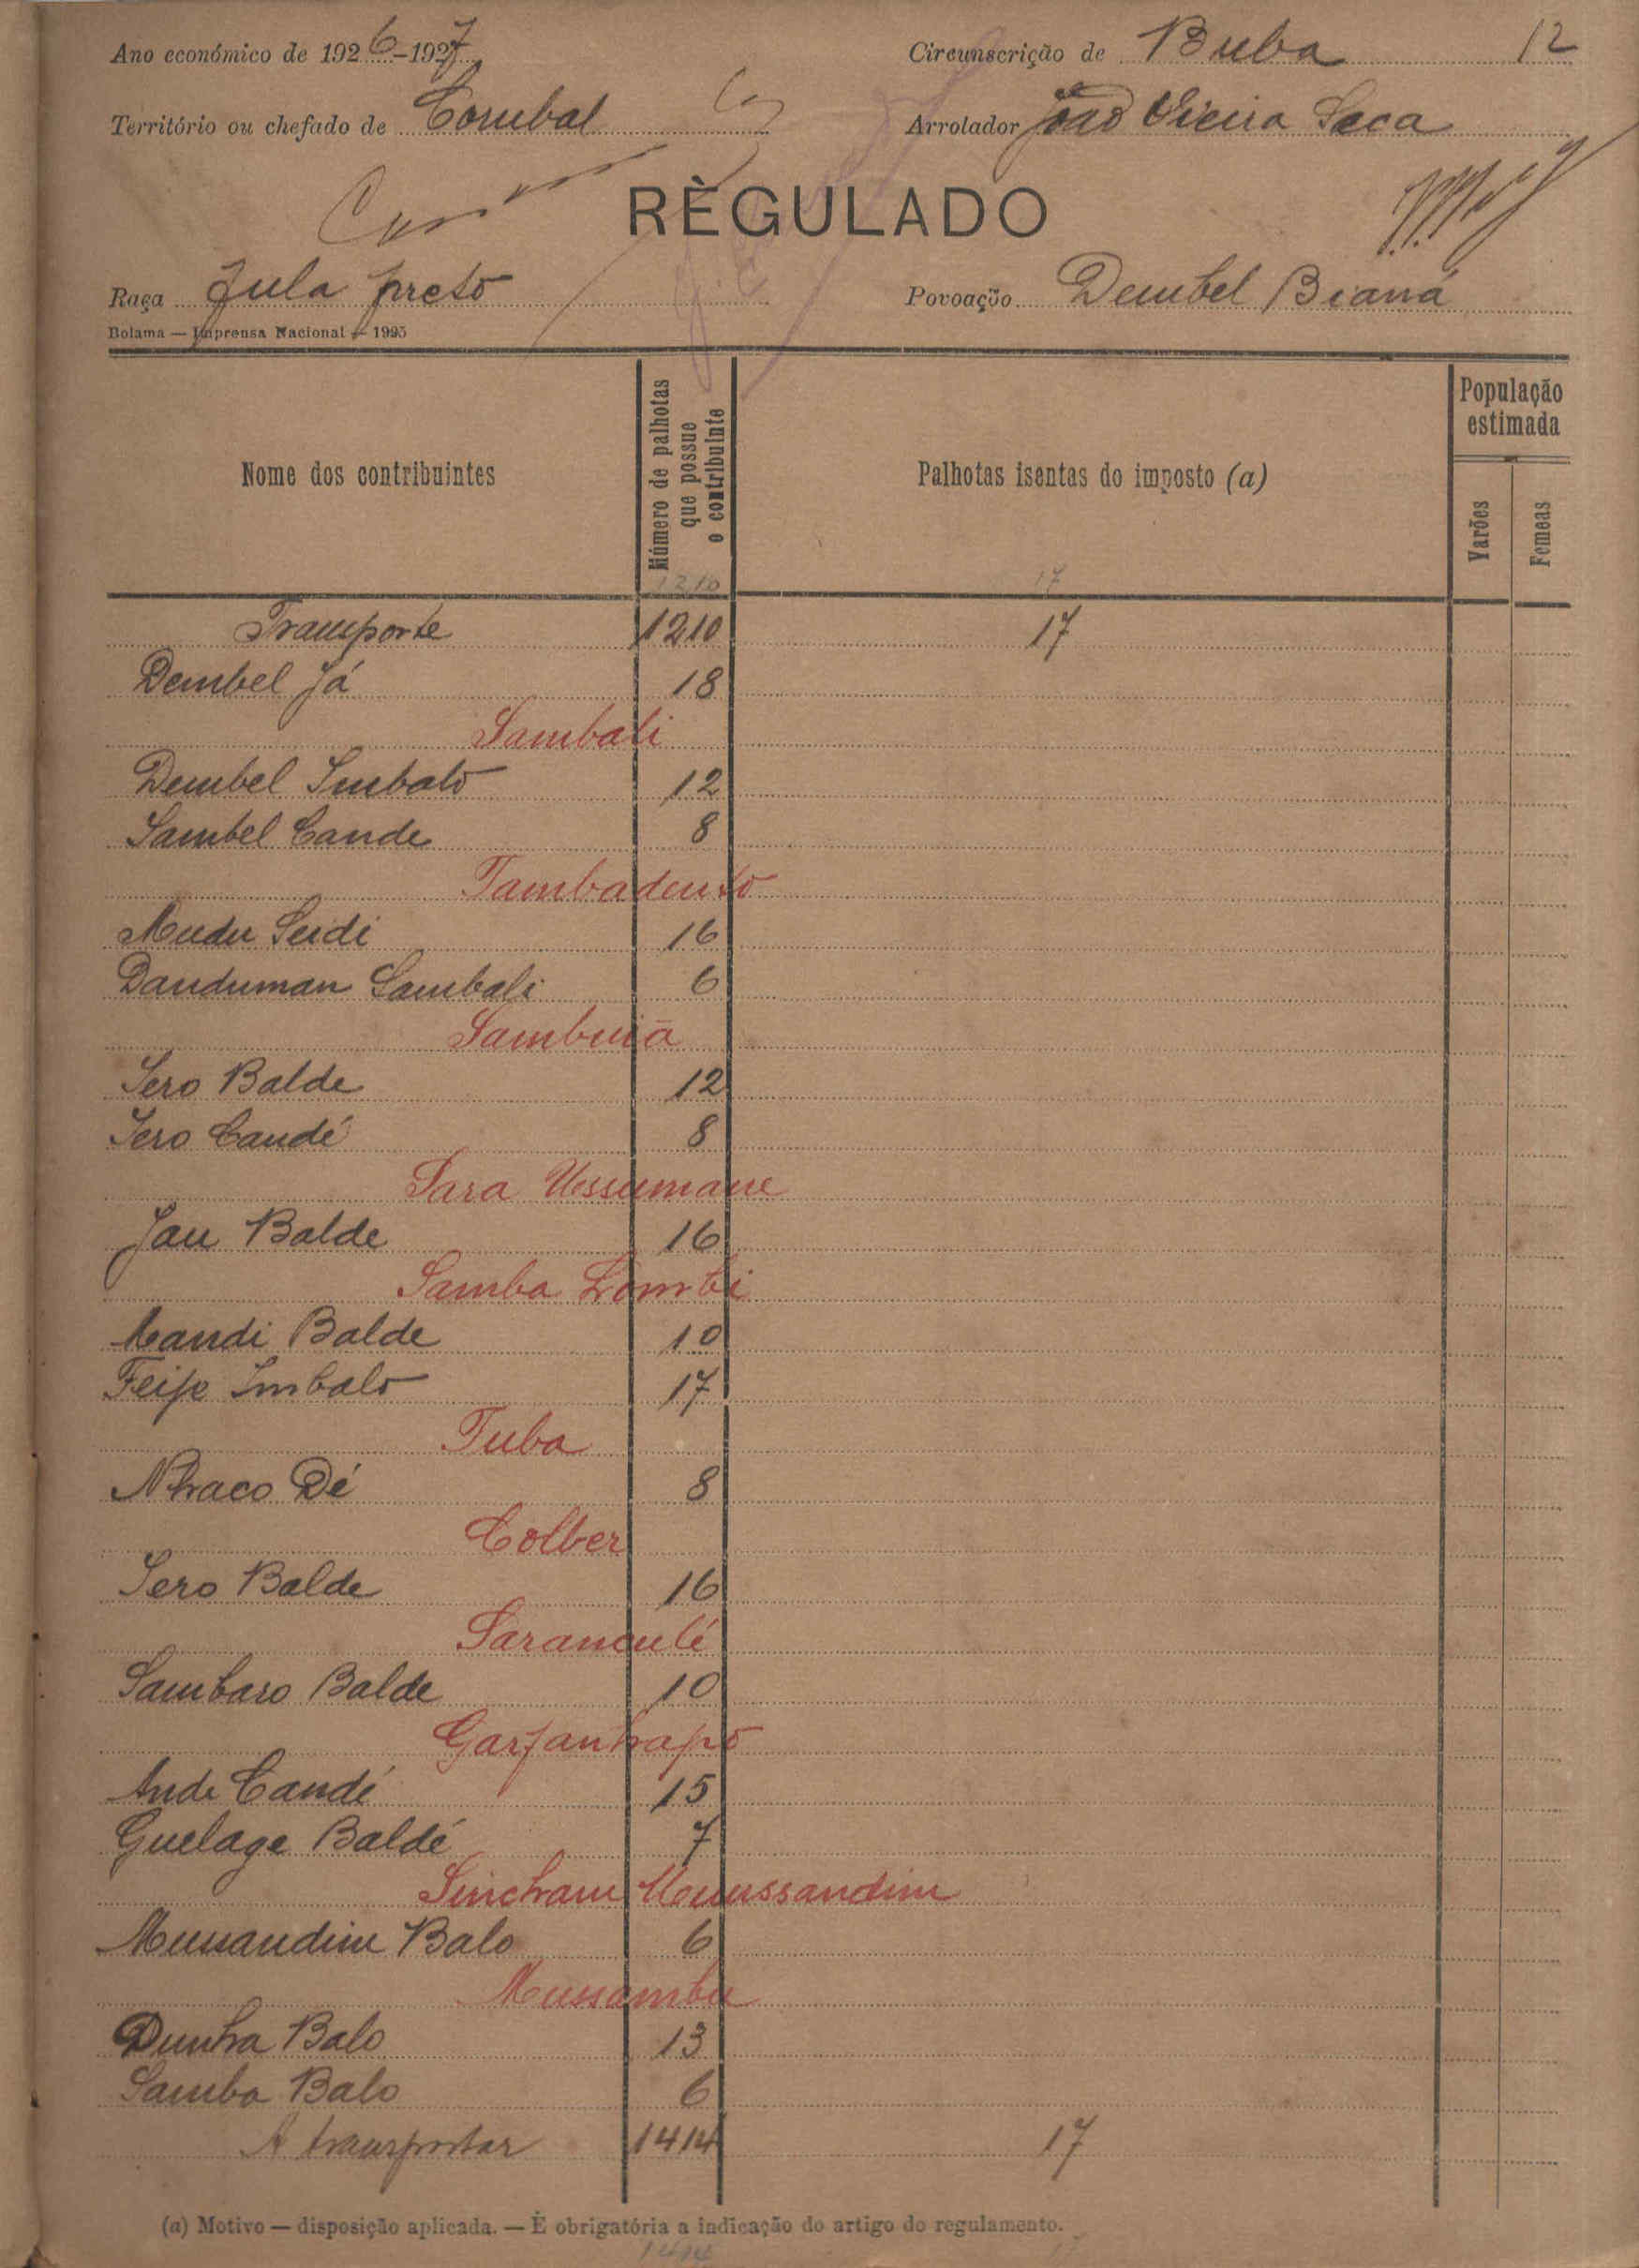 Ano económico de 1926-1927 Circunscrição de Buba 12
Território ou chefado de Corubal Arrolador João Vieira Seca
REGULADO
Raça Fula preto Povoação Dembel Bianá
Bolama — Imprensa Nacional — 1925
Nome dos contribuintes
Número de palhotas que possue o contribuinte
Palhotas isentas do imposto (a)
População estimada
Varões
Femeas
1210 17
Transporte 1210 17
Dembel Já 18
Sambali
Dembel Imbaló 12
Sambel Cande 8
Tambadento
Mudu Seidi 16
Danduman Sambali 6
Sambuiã
Sero Balde 12
Iero Candé 8
Sara Ussumane
Jau Balde 16
Samba Lombi
Mandi Balde 10
Feife Imbaló 17
Tuba
Nhaco Dé 8
Colber
Sero Balde 16
Saranculé
Sambaro Balde 10
Garjanhapó
Ande Candé 15
Guelage Baldé 7
Sincham Mussandim
Mussandim Balo 6
Mussambu
Dunha Balo 13
Samba Balo 6
A transportar 1414 17
(a) Motivo — disposição aplicada. — É obrigatória a indicação do artigo do regulamento.
1414